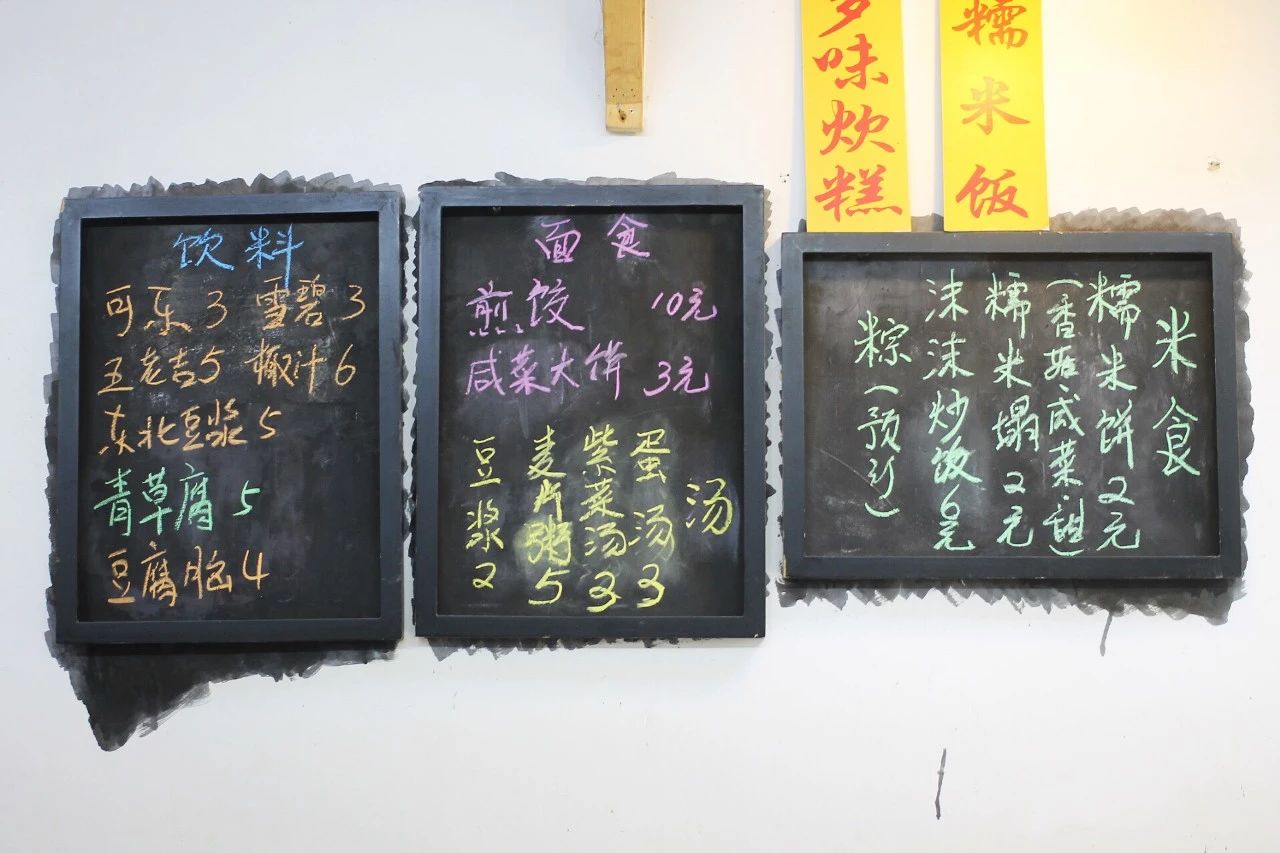 多味炊糕
糯米饭
饮料
可乐 3 雪碧 3
王老吉 5 汁 6
东北豆浆 5
青草腐 5
豆腐脑 4
面食
煎饺 10元
咸菜大饼 3元
汤
蛋汤 3
紫菜汤 3
麦片粥 5
豆浆 2
米食
糯米饼2元
(香菇·咸菜·
糯米塌2元
沫沫炒饭6元
粽(预订)